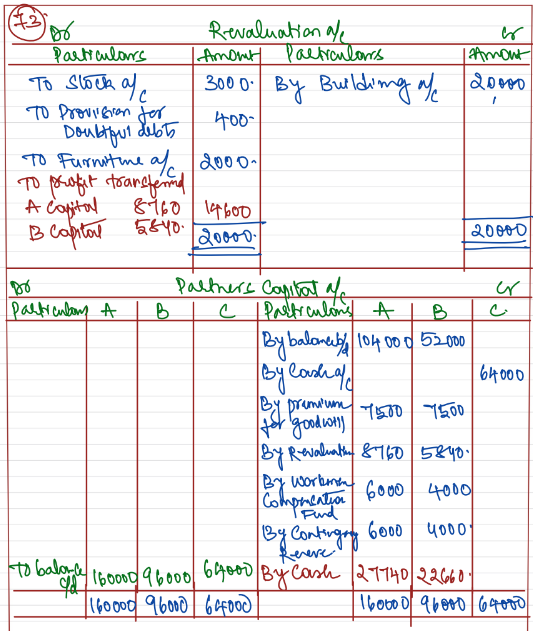 73
Dr Revaluation a/c Cr
Particulars Amount Particulars Amount
To Stock a/c 3000 By Building a/c 20000
To Provision for
Doubtful debts 400
To Furniture a/c 2000
To profit transferred
A Capital 8760 14600
B Capital 5840
20000 20000
Dr Partners Capital a/c Cr
Particulars A B C Particulars A B C
By balance b/d 104000 52000
By Cash a/c 64000
By premium
for goodwill 7500 7500
By Revaluation 8760 5840
By Workmen
Compensation 6000 4000
Fund
By Contingency 6000 4000
Reserve
To balance c/d 160000 96000 64000 By Cash 27740 22660
160000 96000 64000 160000 96000 64000